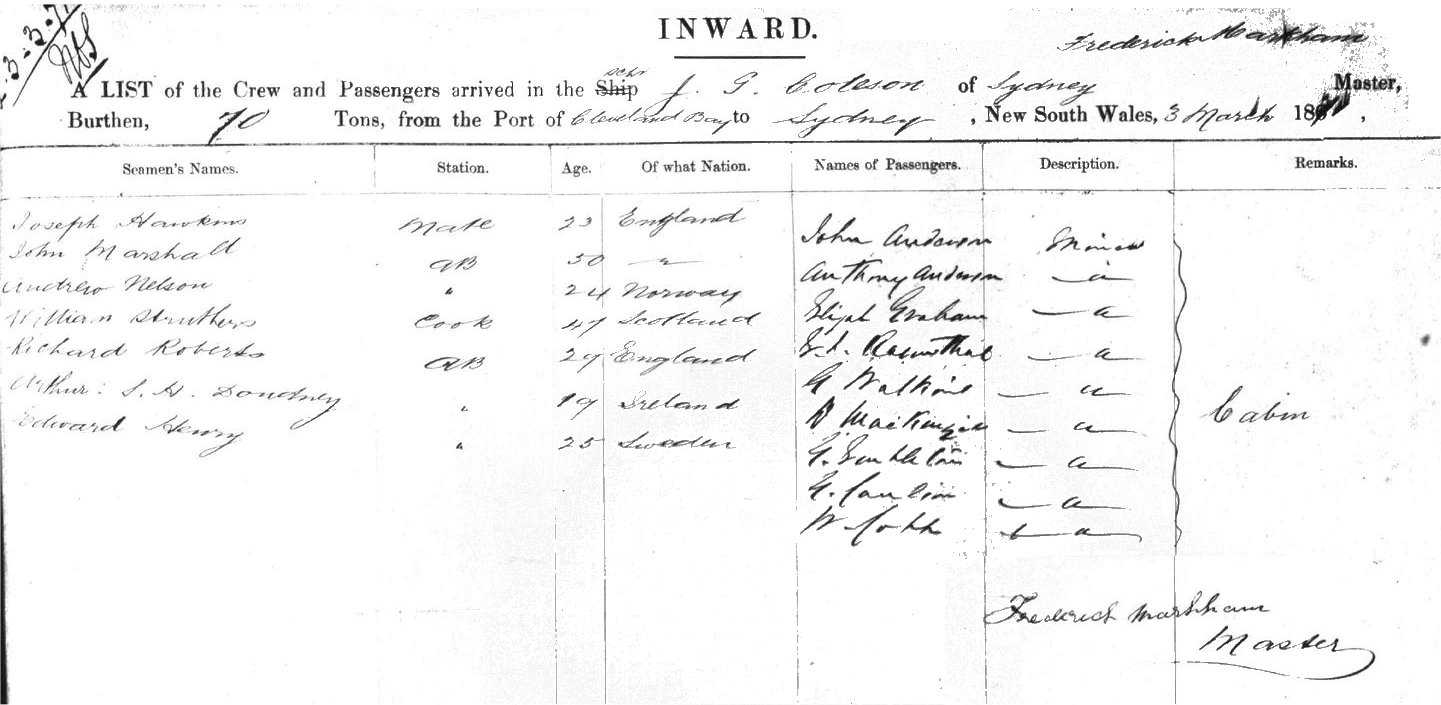 3-3-71
INWARD.
Frederick Markham
A LIST of the Crew and Passengers arrived in the Ship Schr J. G. Coleson of Sydney Master,
Burthen, 70 Tons, from the Port of Cleveland Bay to Sydney, New South Wales, 3 March 1871,
Seamen's Names. Station. Age. Of what Nation. Names of Passengers. Description. Remarks.
Joseph Hawkins Mate 23 England
John Anderson Miner
John Marshall AB 50 "
Anthony Anderson — " —
Andrew Nelson " 24 Norway
Elijah Graham — " —
William Struthers Cook 47 Scotland
Rosenthal — " —
Richard Roberts AB 29 England
G Watkins — " —
Arthur: S. H. Doudney " 19 Ireland
Cabin
R MacKenzie — " —
Edward Henry " 25 Sweden
G. Embleton — " —
G. — " —
W. Cobb — " —
Frederick Markham
Master